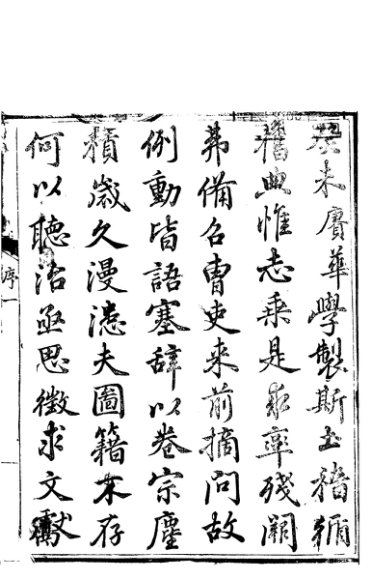 癸未賡華學製斯土稽輿
舊典惟志乘是求率殘闕
弗備召曹吏來前摘問故
例動皆語塞辭以卷宗塵
積歲久漫漶夫圖籍不存
何以聽治亟思徵求文獻
序一